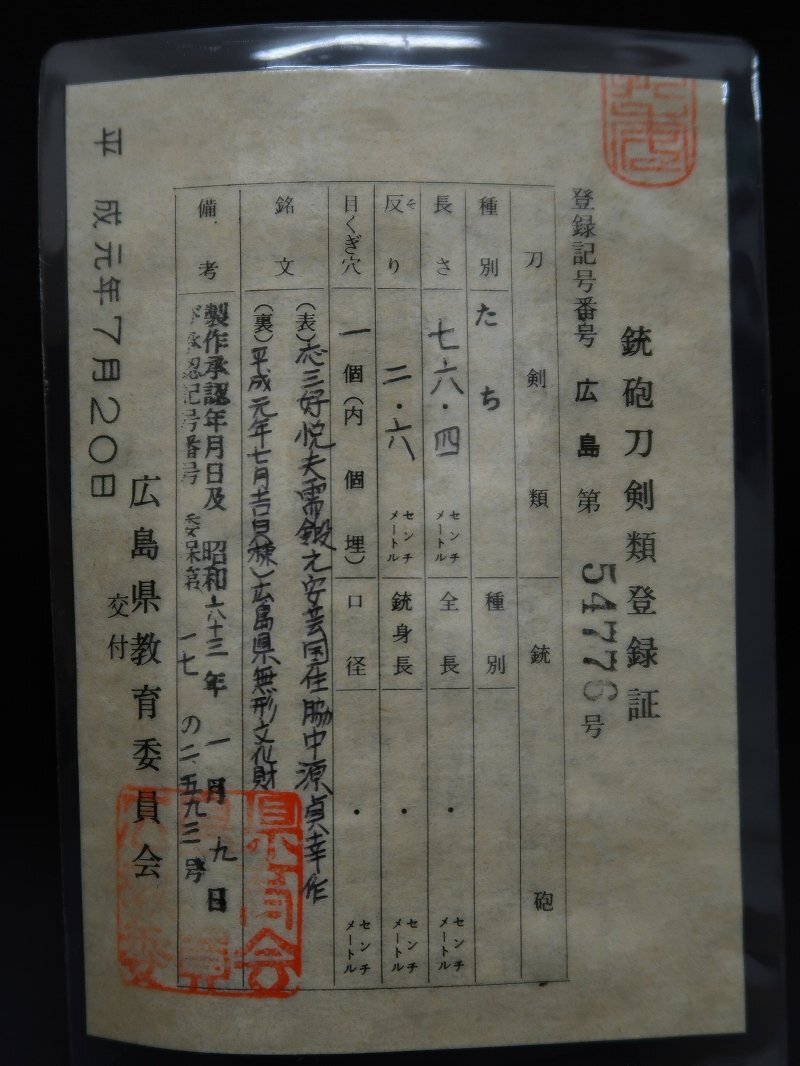 銃砲刀剣類登録証
登録記号番号 広島 第 54776 号
刀剣類
銃砲
種別 たち
種別
長さ 七六・四 センチメートル
全長 ・ センチメートル
反り そ 二・六 センチメートル
銃身長 ・ センチメートル
目くぎ穴 一個(内 個埋)
口径 ・ センチメートル
銘文
(表)応三好悦夫需鍛之安芸国住脇中源貞幸作
(裏)平成元年七月吉日(棟)広島県無形文化財
備考
製作承認年月日及 昭和六十三年一月九日
び承認記号番号 委保第一七の二、五九三号
平成元年7月20日
広島県教育委員会
交付